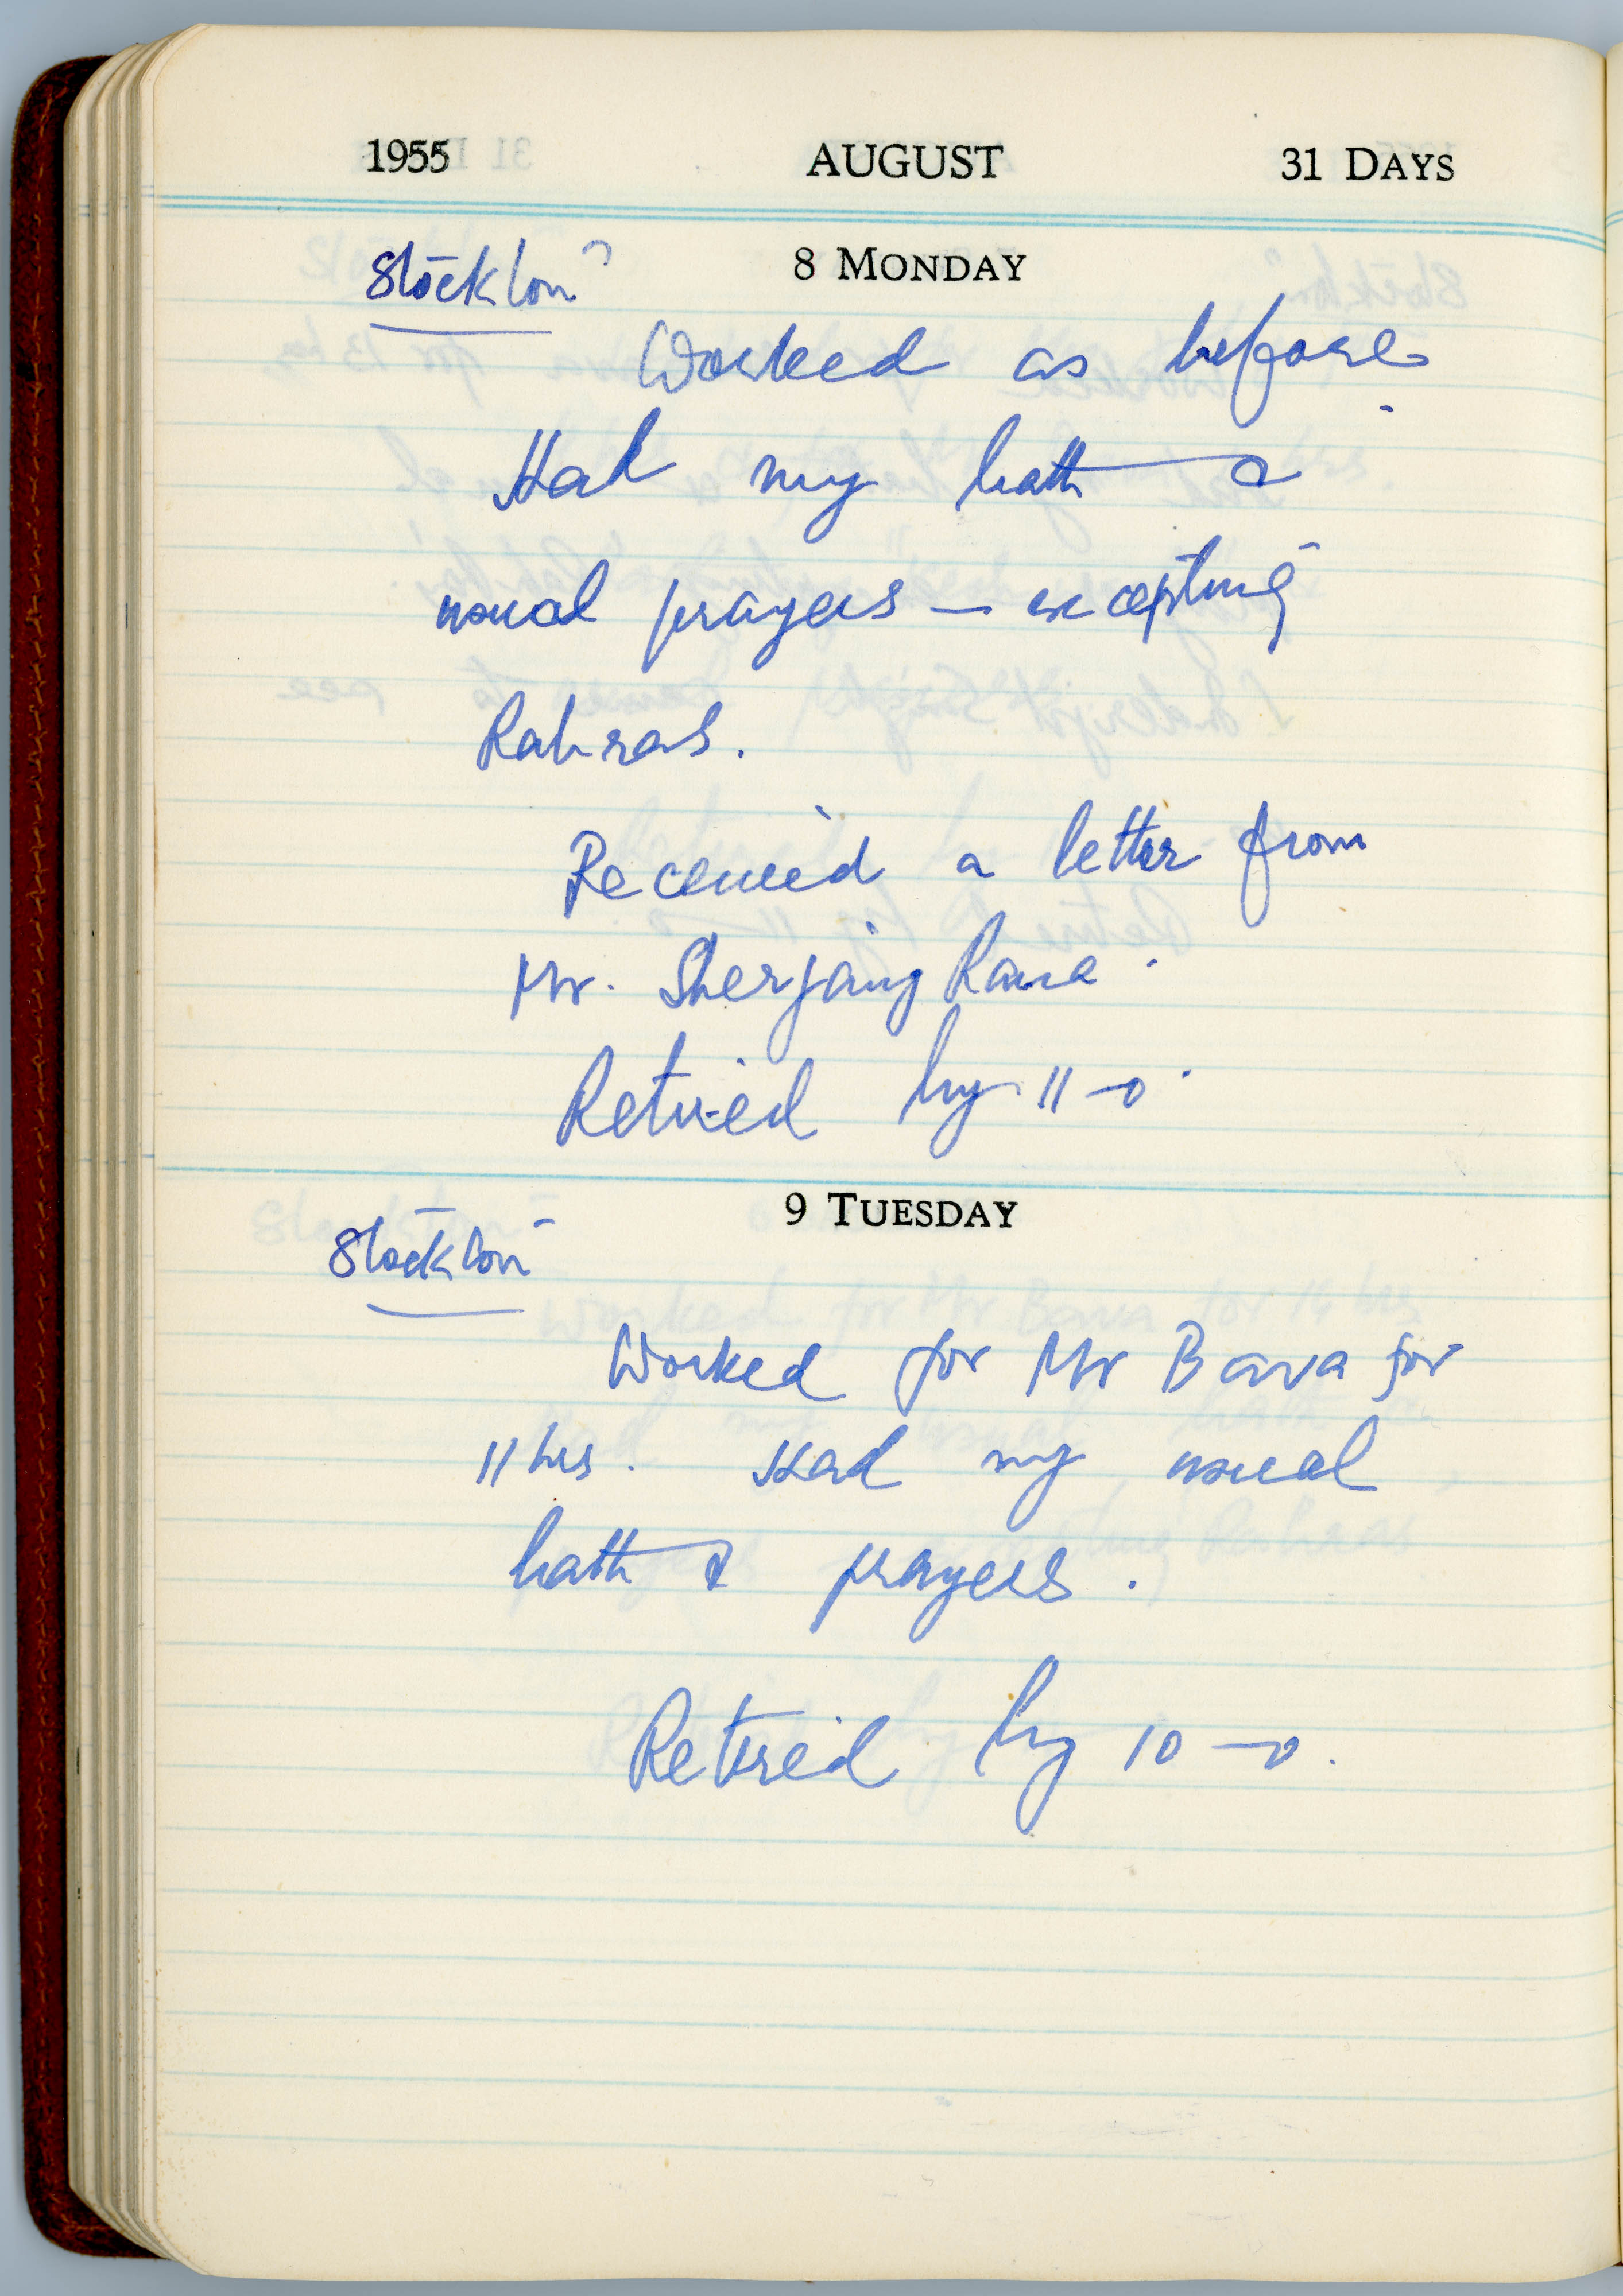 1955 AUGUST 31 DAYS
8 MONDAY
Stockton
Worked as before
Had my bath &
usual prayers – excepting
Rahras.
Received a letter from
Mr. Sherjang Rana.
Retired by 11-0.
9 TUESDAY
Stockton
Worked for Mr Bava for
11 hrs. Had my usual
bath & prayers.
Retired by 10-0.